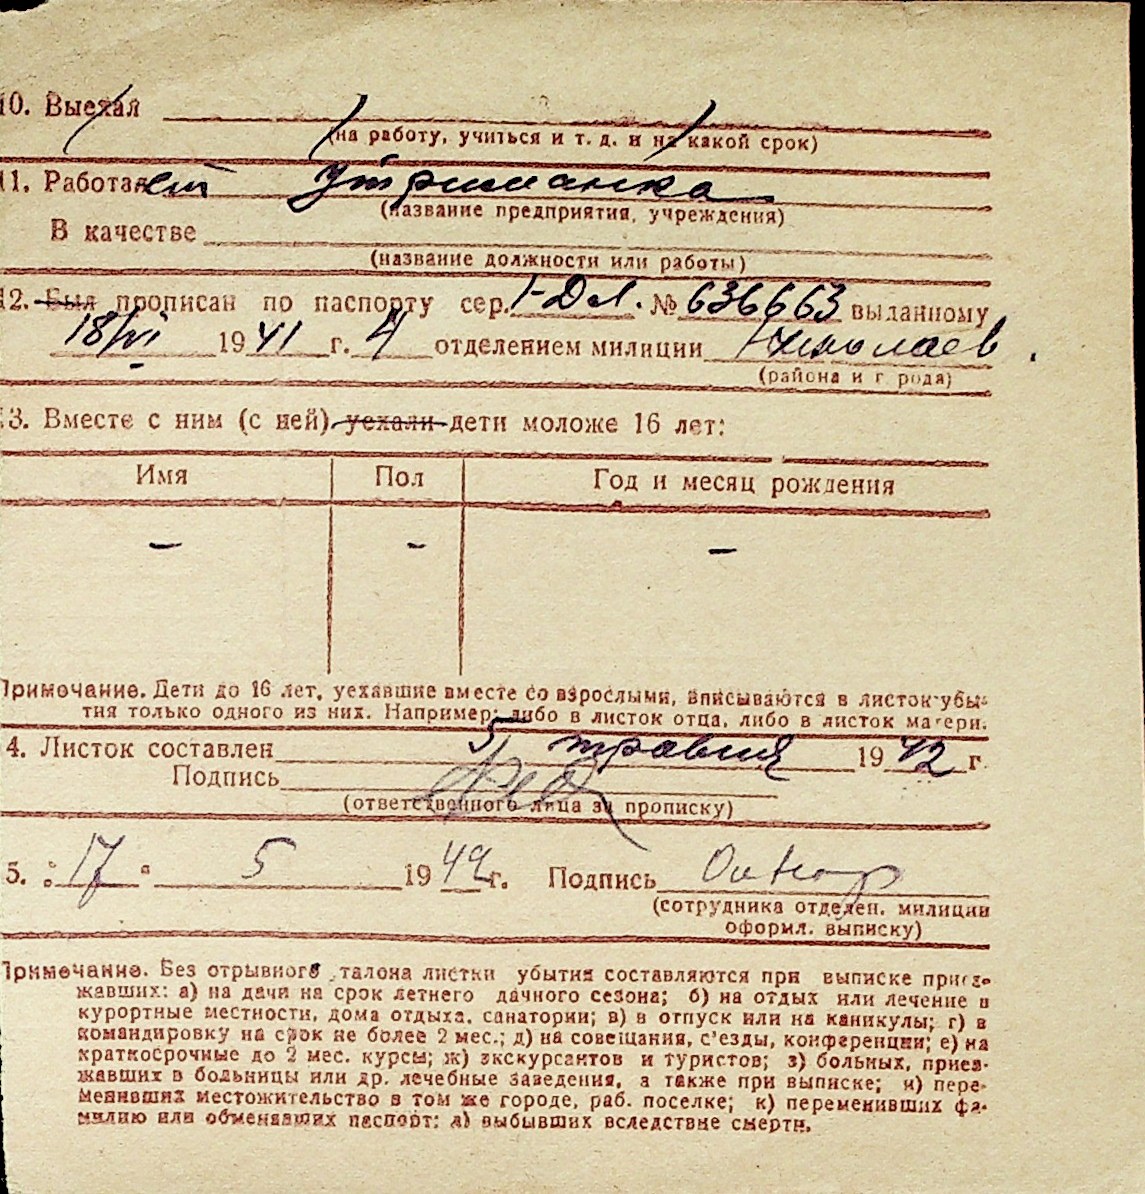 10. Выехал
(на работу, учиться и т. д. и на какой срок)
11. Работает утриманка
(название предприятия, учреждения)
В качестве
(название должности или работы)
12. Был прописан по паспорту сер. I-ДЛ. № 636663 выданному
18/VI 1941 г. 4 отделением милиции Николаев.
(района и г рода)
3. Вместе с ним (с ней) уехали дети моложе 16 лет:
Имя Пол Год и месяц рождения
– – –
Примечание. Дети до 16 лет, уехавшие вместе со взрослыми, вписываются в листок убы-
тия только одного из них. Например: либо в листок отца, либо в листок матери.
4. Листок составлен 5 травня 1942 г.
Подпись
(ответственного лица за прописку)
5. „17" 5 1942 г. Подпись
(сотрудника отделен. милиции
оформл. выписку)
Примечание. Без отрывного талона листки убытия составляются при выписке приез-
жавших: а) на дачи на срок летнего дачного сезона; б) на отдых или лечение в
курортные местности, дома отдыха, санатории; в) в отпуск или на каникулы; г) в
командировку на срок не более 2 мес.; д) на совещания, с'езды, конференции; е) на
краткосрочные до 2 мес. курсы; ж) экскурсантов и туристов; з) больных, приез-
жавших в больницы или др. лечебные заведения, а также при выписке; и) пере-
менивших местожительство в том же городе, раб. поселке; к) переменивших фа-
милию или обменявших паспорт; л) выбывших вследствие смерти.